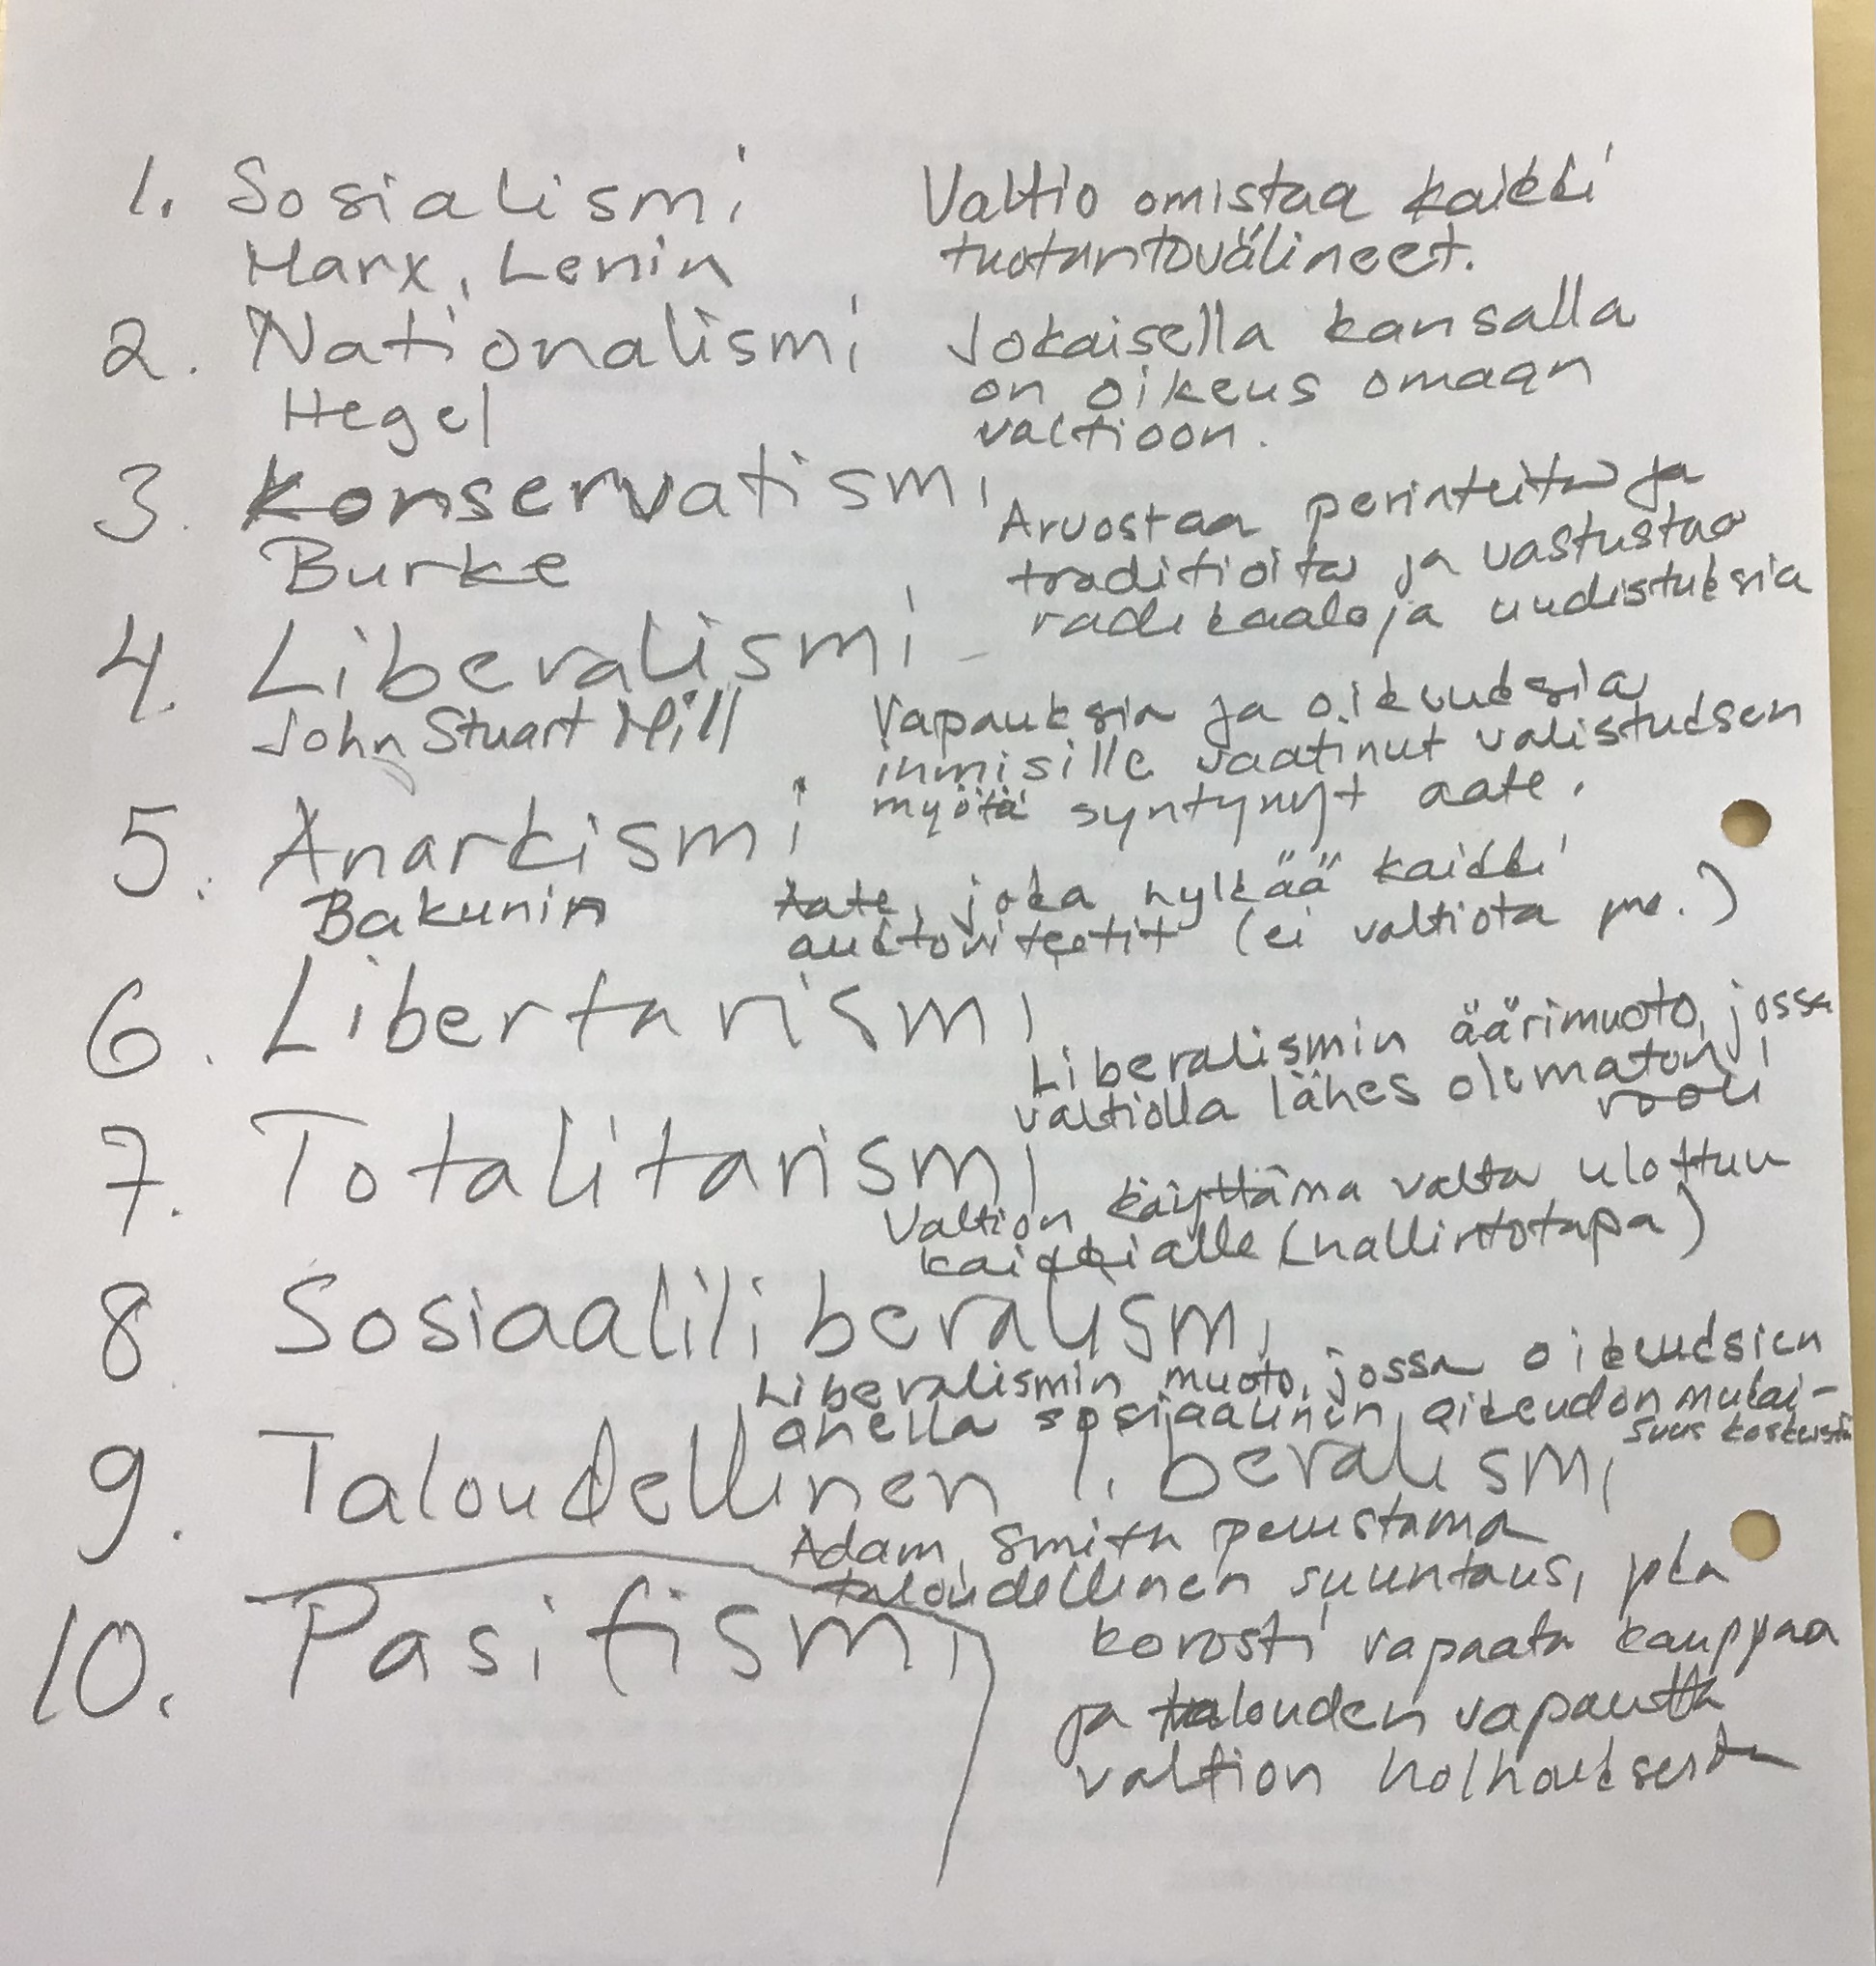 1. Sosialismi
Marx, Lenin
Valtio omistaa kaikki
tuotantovälineet.
2. Nationalismi
Hegel
Jokaisella kansalla
on oikeus omaan
valtioon.
3. Konservatismi
Burke
Arvostaa perinteitä ja
traditioita ja vastustaa
radikaaleja uudistuksia
4. Liberalismi
John Stuart Mill
Vapauksia ja oikeuksia
ihmisille vaatinut valistuksen
myötä syntynyt aate.
5. Anarkismi
Bakunin
Aate, joka hylkää kaikki
auktoriteetit (ei valtiota yms.)
6. Libertarismi
Liberalismin äärimuoto, jossa
valtiolla lähes olematon
rooli
7. Totalitarismi
Valtion käyttämä valta ulottuu
kaikkialle (hallintotapa)
8 Sosiaaliliberalismi
Liberalismin muoto, jossa oikeuksien
ohella sosiaalinen oikeudenmukai-
suus keskeistä
9. Taloudellinen liberalismi
Adam Smith perustama
taloudellinen suuntaus, joka
korosti vapaata kauppaa
ja talouden vapautta
valtion holhouksesta
10. Pasifismi